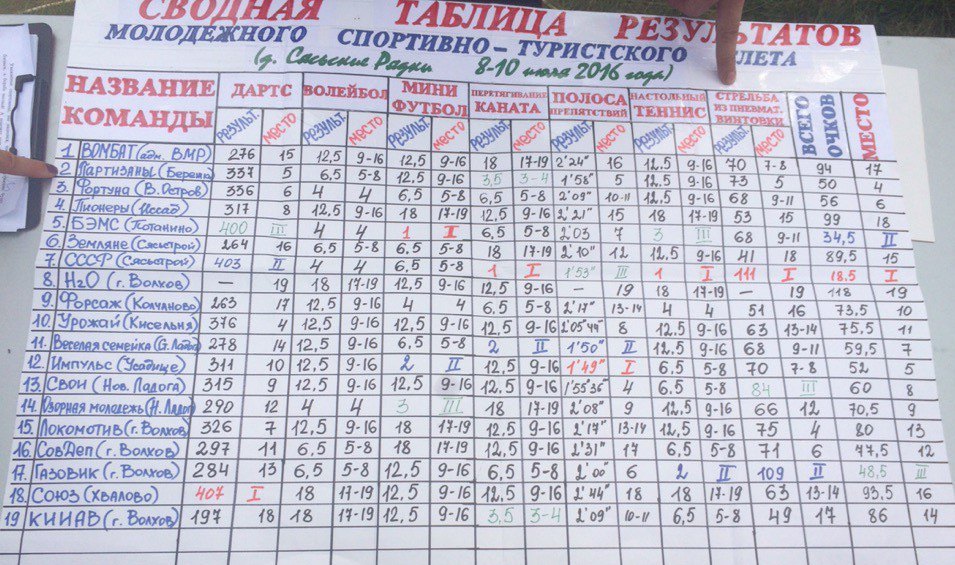 СВОДНАЯ ТАБЛИЦА РЕЗУЛЬТАТОВ
МОЛОДЕЖНОГО СПОРТИВНО-ТУРИСТСКОГО ЛЕТА
(д. Сясьские Рядки 8-10 июля 2016 года)
НАЗВАНИЕ КОМАНДЫ ДАРТС ВОЛЕЙБОЛ МИНИ ФУТБОЛ ПЕРЕТЯГИВАНИЕ КАНАТА ПОЛОСА ПРЕПЯТСТВИЙ НАСТОЛЬНЫЙ ТЕННИС СТРЕЛЬБА ИЗ ПНЕВМАТ. ВИНТОВКИ ВСЕГО ОЧКОВ МЕСТО
РЕЗУЛЬТ. МЕСТО РЕЗУЛЬТ. МЕСТО РЕЗУЛЬТ. МЕСТО РЕЗУЛЬТ. МЕСТО РЕЗУЛЬТ. МЕСТО РЕЗУЛЬТ. МЕСТО РЕЗУЛЬТ. МЕСТО
1. ВОМБАТ (адм. ВМР) 276 15 12,5 9-16 12,5 9-16 18 17-19 2'24" 16 12,5 9-16 70 7-8 94 17
2. Партизаны (Бережки 337 5 6,5 5-8 12,5 9-16 3,5 3-4 1'58" 5 12,5 9-16 73 5 50 4
3. Фортуна (В. Остров) 336 6 4 4 6,5 5-8 6,5 5-8 2'09" 10-11 12,5 9-16 68 9-11 56 6
4. Пионеры (Иссад) 317 8 12,5 9-16 18 17-19 12,5 9-16 2'21" 15 18 17-19 53 15 99 18
5. БЭМС (Потанино) 400 III 4 4 1 I 6,5 5-8 2'03 7 3 III 68 9-11 34,5 II
6. Земляне (Сясьстрой) 264 16 6,5 5-8 6,5 5-8 18 17-19 2'10" 12 12,5 9-16 41 18 89,5 15
7. СССР (Сясьстрой) 403 II 4 4 6,5 5-8 1 I 1'53" III 1 I 111 I 18,5 I
8. H2O (г. Волхов) — 19 18 17-19 12,5 9-16 12,5 9-16 — 19 18 17-19 — 19 118 19
9. Форсаж (Колчаново) 263 17 12,5 9-16 4 4 6,5 5-8 2'17" 13-14 4 4 51 16 73,5 10
10. Урожай (Кисельня) 376 4 12,5 9-16 12,5 9-16 12,5 9-16 2'05"44" 8 12,5 9-16 63 13-14 75,5 11
11. Веселая семейка (С. Ладога) 278 14 12,5 9-16 6,5 5-8 2 II 1'50" II 12,5 9-16 68 9-11 59,5 7
12. Импульс (Усадище) 311 10 12,5 9-16 2 II 12,5 9-16 1'49" I 6,5 5-8 70 7-8 52 5
13. СВОИ (Нов. Ладога) 315 9 12,5 9-16 12,5 9-16 12,5 9-16 1'55"36" 4 6,5 5-8 84 III 60 8
14. Озорная молодежь (Н. Ладога) 290 12 4 4 3 III 18 17-19 2'08" 9 12,5 9-16 66 12 70,5 9
15. Локомотив (г. Волхов) 326 7 12,5 9-16 18 17-19 12,5 9-16 2'17" 13-14 12,5 9-16 75 4 80 13
16. СовДеп (г. Волхов) 297 11 6,5 5-8 18 17-19 12,5 9-16 2'31" 17 6,5 5-8 71 6 77,5 12
17. Газовик (г. Волхов) 284 13 6,5 5-8 12,5 9-16 6,5 5-8 2'00" 6 2 II 109 II 48,5 III
18. СОЮЗ (Хвалово) 407 I 18 17-19 12,5 9-16 12,5 9-16 2'44" 18 18 17-19 63 13-14 93,5 16
19 КИНАВ (г. Волхов) 197 18 18 17-19 12,5 9-16 3,5 3-4 2'09" 10-11 6,5 5-8 49 17 86 14